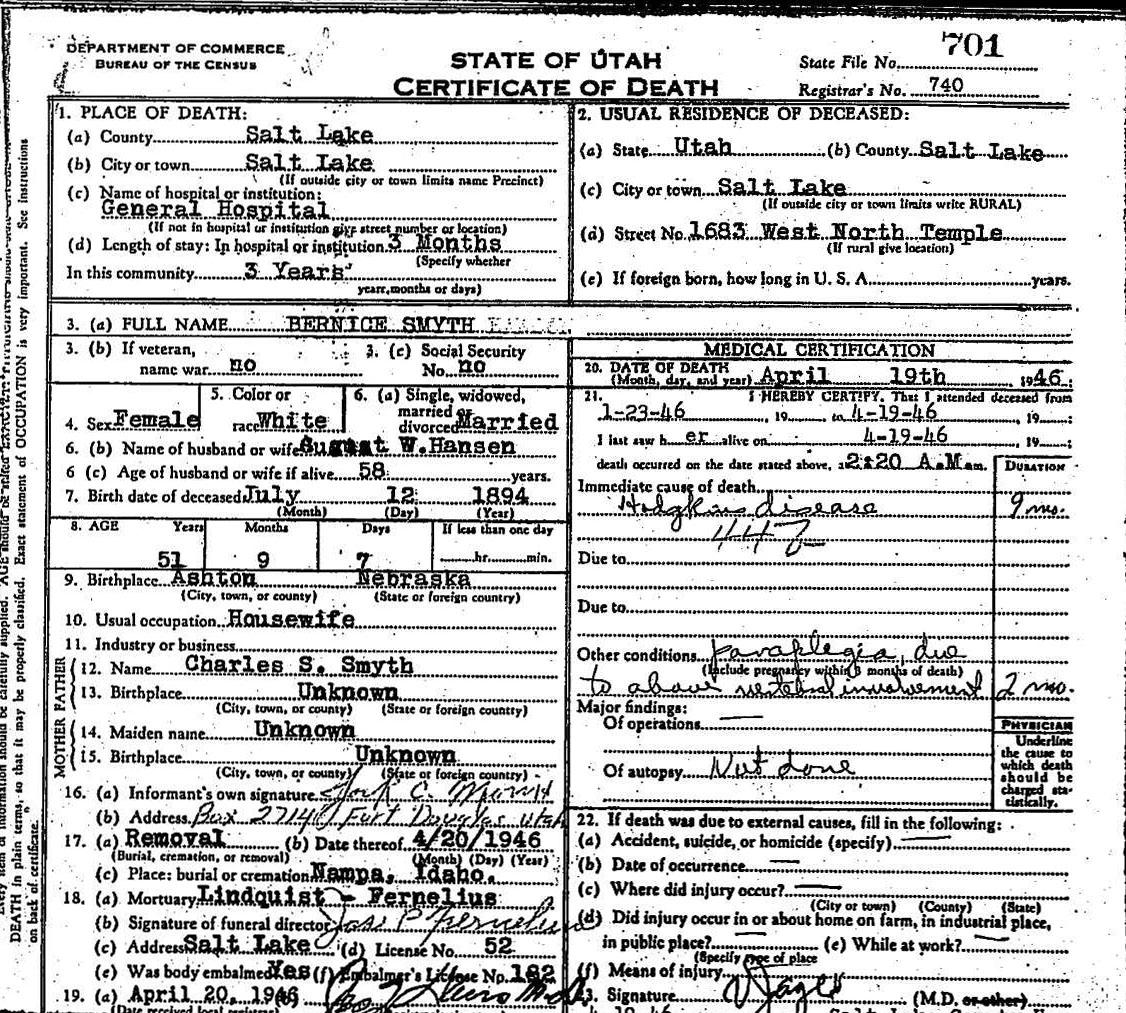 DEPARTMENT OF COMMERCE
BUREAU OF THE CENSUS
STATE OF UTAH
CERTIFICATE OF DEATH
701
State File No.
Registrar's No. 740
1. PLACE OF DEATH:
(a) County Salt Lake
(b) City or town Salt Lake
(If outside city or town limits name Precinct)
(c) Name of hospital or institution:
General Hospital
(If not in hospital or institution give street number or location)
(d) Length of stay: In hospital or institution 3 Months
(Specify whether
In this community 3 Years
years, months or days)
2. USUAL RESIDENCE OF DECEASED:
(a) State Utah (b) County Salt Lake
(c) City or town Salt Lake
(If outside city or town limits write RURAL)
(d) Street No. 1683 West North Temple
(If rural give location)
(e) If foreign born, how long in U. S. A. years.
3. (a) FULL NAME BERNICE SMYTH
3. (b) If veteran,
name war no
3. (c) Social Security
No. no
4. Sex Female
5. Color or
race White
6. (a) Single, widowed,
married or
divorced Married
6. (b) Name of husband or wife August W. Hansen
6 (c) Age of husband or wife if alive 58 years.
7. Birth date of deceased July 12 1894
(Month) (Day) (Year)
8. AGE Years Months Days If less than one day
51 9 7 hr. min.
9. Birthplace Ashton Nebraska
(City, town, or county) (State or foreign country)
10. Usual occupation Housewife
11. Industry or business
FATHER
12. Name Charles S. Smyth
13. Birthplace Unknown
(City, town, or county) (State or foreign country)
MOTHER
14. Maiden name Unknown
15. Birthplace Unknown
(City, town, or county) (State or foreign country)
16. (a) Informant's own signature C.
(b) Address Box Fort Douglas Utah
17. (a) Removal (b) Date thereof 4/20/1946
(Burial, cremation, or removal) (Month) (Day) (Year)
(c) Place: burial or cremation Nampa, Idaho.
18. (a) Mortuary Lindquist - Fernelius
(b) Signature of funeral director P Fernelius
(c) Address Salt Lake (d) License No. 52
(e) Was body embalmed Yes (f) Embalmer's License No. 182
19. (a) April 20, 1946
(Date received local registrar)
MEDICAL CERTIFICATION
20. DATE OF DEATH
(Month, day, and year) April 19th 1946
21. I HEREBY CERTIFY, That I attended deceased from
1-23-46, 19 to 4-19-46, 19 ;
I last saw h er alive on 4-19-46, 19 ;
death occurred on the date stated above, a 2:20 A.M. m.
DURATION
Immediate cause of death
Hodgkins disease 9 mo.
Due to
Due to
Other conditions paraplegia, due
(Include pregnancy within 3 months of death)
to above vertebral involvement 2 mo.
Major findings:
Of operations —
Of autopsy Not done
PHYSICIAN
Underline
the cause to
which death
should be
charged sta-
tistically.
22. If death was due to external causes, fill in the following:
(a) Accident, suicide, or homicide (specify) —
(b) Date of occurrence —
(c) Where did injury occur? —
(City or town) (County) (State)
(d) Did injury occur in or about home on farm, in industrial place,
in public place? — (e) While at work? —
(Specify type of place
(f) Means of injury
23. Signature (M.D. or other)
AGE should be stated EXACTLY.
DEATH in plain terms, so that it may be properly classified. Exact statement of OCCUPATION is very important. See instructions
on back of certificate.